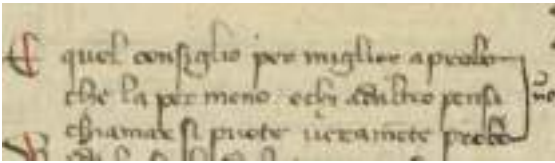 E quel consiglio per miglior aprobo
che la per meno echi adaltro pensa
chiamar si puote veramẽte probo